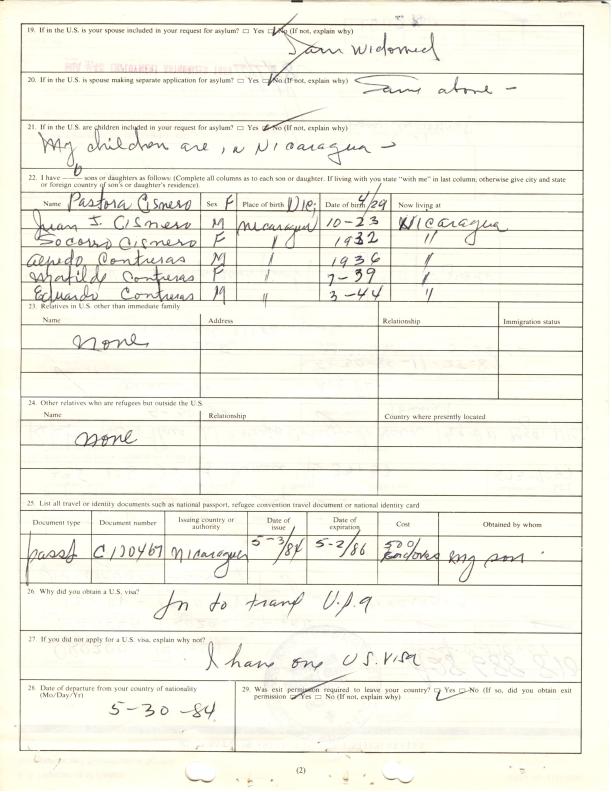 19. If in the U.S. is your spouse included in your request for asylum? □ Yes □ No (If not, explain why)
I am Widowed
20. If in the U.S. is spouse making separate application for asylum? □ Yes □ No (If not, explain why)
Same above -
21. If in the U.S. are children included in your request for asylum? □ Yes □ No (If not, explain why)
My children are in Nicaragua -
22. I have 6 sons or daughters as follows: (Complete all columns as to each son or daughter. If living with you state "with me" in last column, otherwise give city and state
or foreign country of son's or daughter's residence).
Name Pastora Cisnero Sex F Place of birth Nic; Date of birth 4/29 Now living at
Juan J. Cisnero M Nicaragua 10-23 Nicaragua
Socorro Cisnero F " 1932 "
Alfredo Contreras M " 1936 "
Contreras F " 7-39 "
Eduardo Contreras M " 3-44 "
23. Relatives in U.S. other than immediate family
Name Address Relationship Immigration status
None
24. Other relatives who are refugees but outside the U.S.
Name Relationship Country where presently located
None
25. List all travel or identity documents such as national passport, refugee convention travel document or national identity card
Document type Document number Issuing country or authority Date of issue Date of expiration Cost Obtained by whom
passp C120467 Nicaragua 5-3/84 5-2/86 500 my son
26. Why did you obtain a U.S. visa?
In to tranf U.S.A
27. If you did not apply for a U.S. visa, explain why not?
I have one U.S. Visa
28. Date of departure from your country of nationality
(Mo/Day/Yr)
5-30-84
29. Was exit permission required to leave your country? □ Yes □ No (If so, did you obtain exit
permission □ Yes □ No (If not, explain why)
(2)